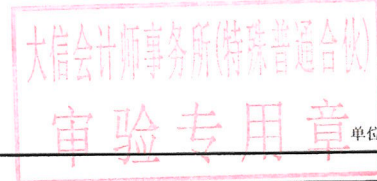 大信会计师事务所(特殊普通合伙)
审验专用章
单位